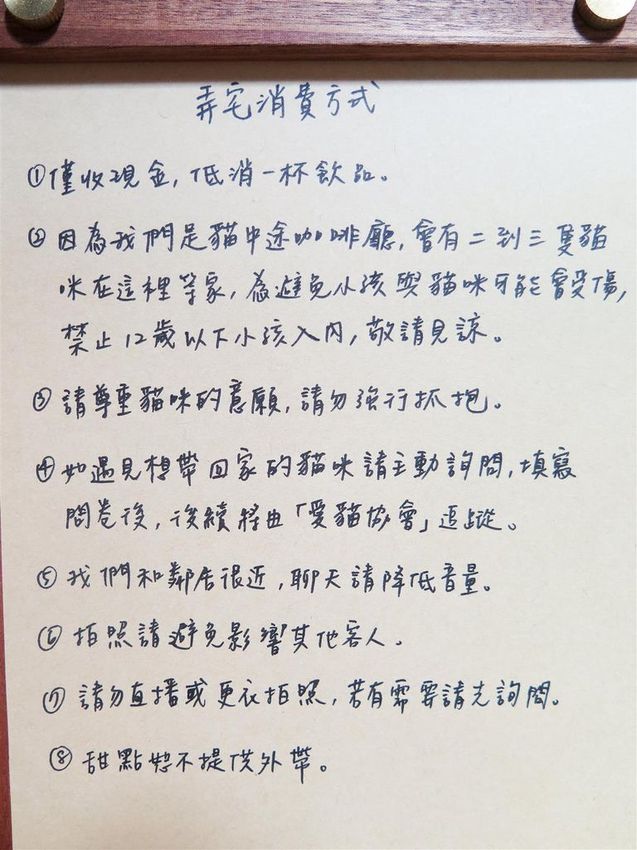 弄宅消費方式
①僅收現金,低消一杯飲品。
②因為我們是貓中途咖啡廳,會有二到三隻貓
咪在這裡等家,為避免小孩與貓咪可能會受傷,
禁止12歲以下小孩入內,敬請見諒。
③請尊重貓咪的意願,請勿強行抓抱。
④如遇見想帶回家的貓咪請主動詢問,填寫
問卷後,後續將由「愛貓協會」追蹤。
⑤我們和鄰居很近,聊天請降低音量。
⑥拍照請避免影響其他客人.
⑦請勿直播或更衣拍照,若有需要請先詢問。
⑧甜點恕不提供外帶。